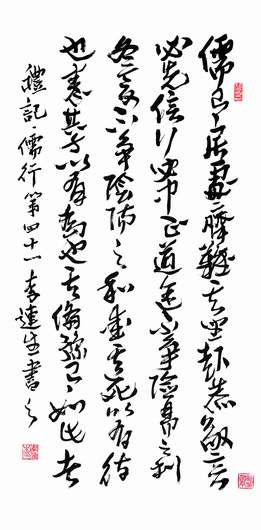 儒有居處齊難其坐起恭敬言
必先信行必中正道途不爭險易之利
冬夏不爭陰陽之和愛其死以有待
也養其身以有為也其備豫有如此者
禮記·儒行第四十一 李連生書之